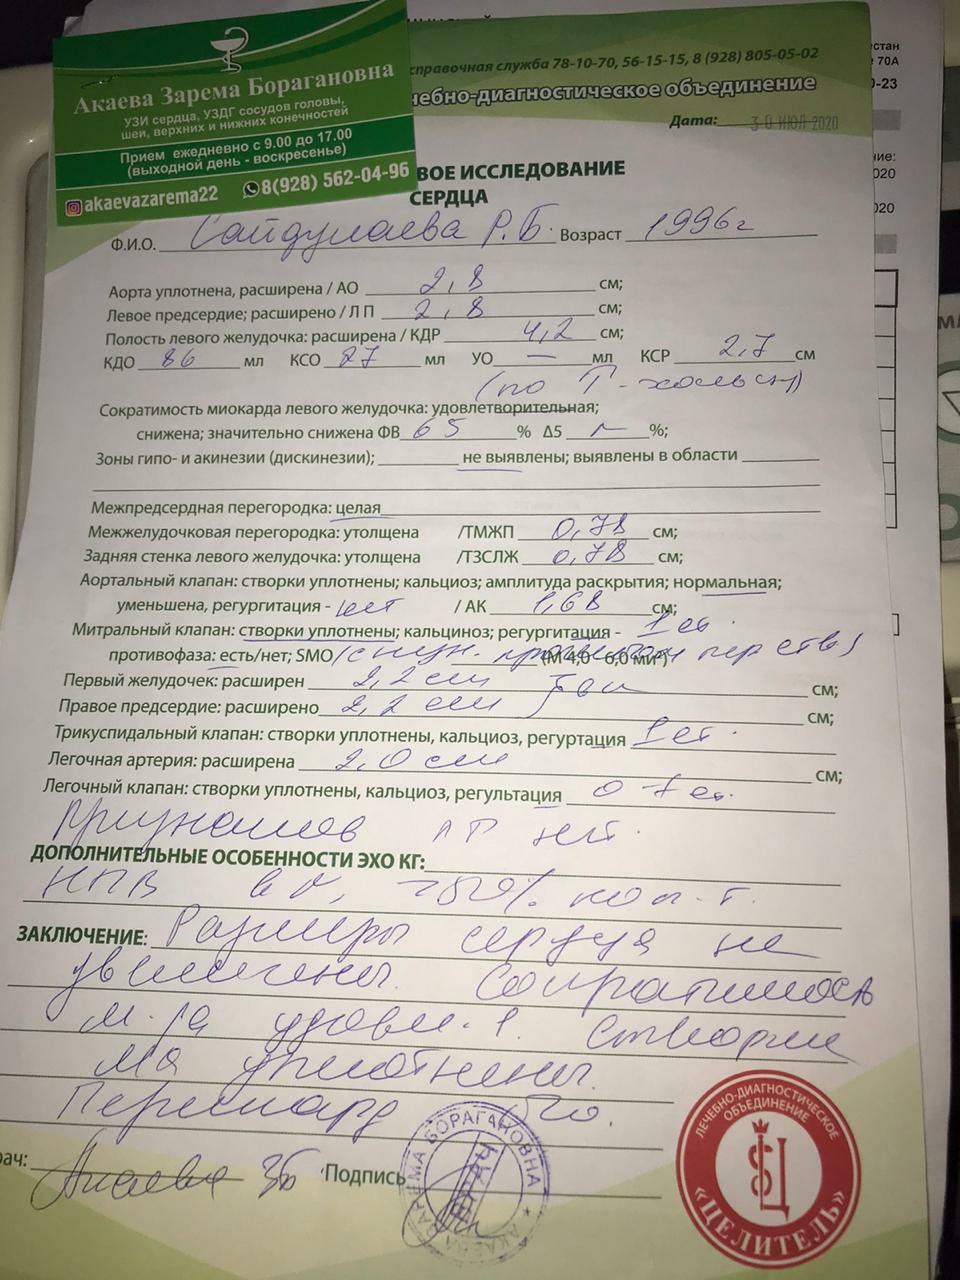 Акаева Зарема Борагановна
УЗИ сердца, УЗДГ сосудов головы,
шеи, верхних и нижних конечностей
Прием ежедневно с 9.00 до 17.00
(выходной день - воскресенье)
akaevazarema22 8(928) 562-04-96
справочная служба 78-10-70, 56-15-15, 8 (928) 805-05-02
чебно-диагностическое объединение
Дата: 30 ИЮЛ 2020
стан
70А
0-23
ние:
020
020
ВОЕ ИССЛЕДОВАНИЕ
СЕРДЦА
Ф.И.О. Сайдулаева Р.Б. Возраст 1996г
Аорта уплотнена, расширена / АО 2,8 см;
Левое предсердие; расширено / Л П 2,8 см;
Полость левого желудочка: расширена / КДР 4,2 см;
КДО 86 мл КСО 27 мл УО — мл КСР 2,7 см
(по Т-
Сократимость миокарда левого желудочка: удовлетворительная;
снижена; значительно снижена ФВ 65 % Δ5 %;
Зоны гипо- и акинезии (дискинезии); не выявлены; выявлены в области
Межпредсердная перегородка: целая
Межжелудочковая перегородка: утолщена /ТМЖП 0,78 см;
Задняя стенка левого желудочка: утолщена /ТЗСЛЖ 0,78 см;
Аортальный клапан: створки уплотнены; кальциоз; амплитуда раскрытия; нормальная;
уменьшена, регургитация - нет / АК 1,68 см;
Митральный клапан: створки уплотнены; кальциноз; регургитация - 1 ст.
противофаза: есть/нет; SMO (М 4,0 - 6,0 ми²)
Первый желудочек: расширен 2,2 см см;
Правое предсердие: расширено 2,2 см см;
Трикуспидальный клапан: створки уплотнены, кальциоз, регуртация 1 ст.
Легочная артерия: расширена 2,0 см см;
Легочный клапан: створки уплотнены, кальциоз, регультация 0-1 ст.
Признаков ЛГ нет.
ДОПОЛНИТЕЛЬНЫЕ ОСОБЕННОСТИ ЭХО КГ:
НПВ в N, >50%
ЗАКЛЮЧЕНИЕ: Размеры сердца не
увеличены. Сократимость
м-да удовл-я. Створки
МК уплотнены.
Перикард б/о.
рач: Акаева ЗБ Подпись
АКАЕВА ЗАРЕМА БОРАГАНОВНА
ВРАЧ
ЛЕЧЕБНО-ДИАГНОСТИЧЕСКОЕ
ОБЪЕДИНЕНИЕ
«ЦЕЛИТЕЛЬ»